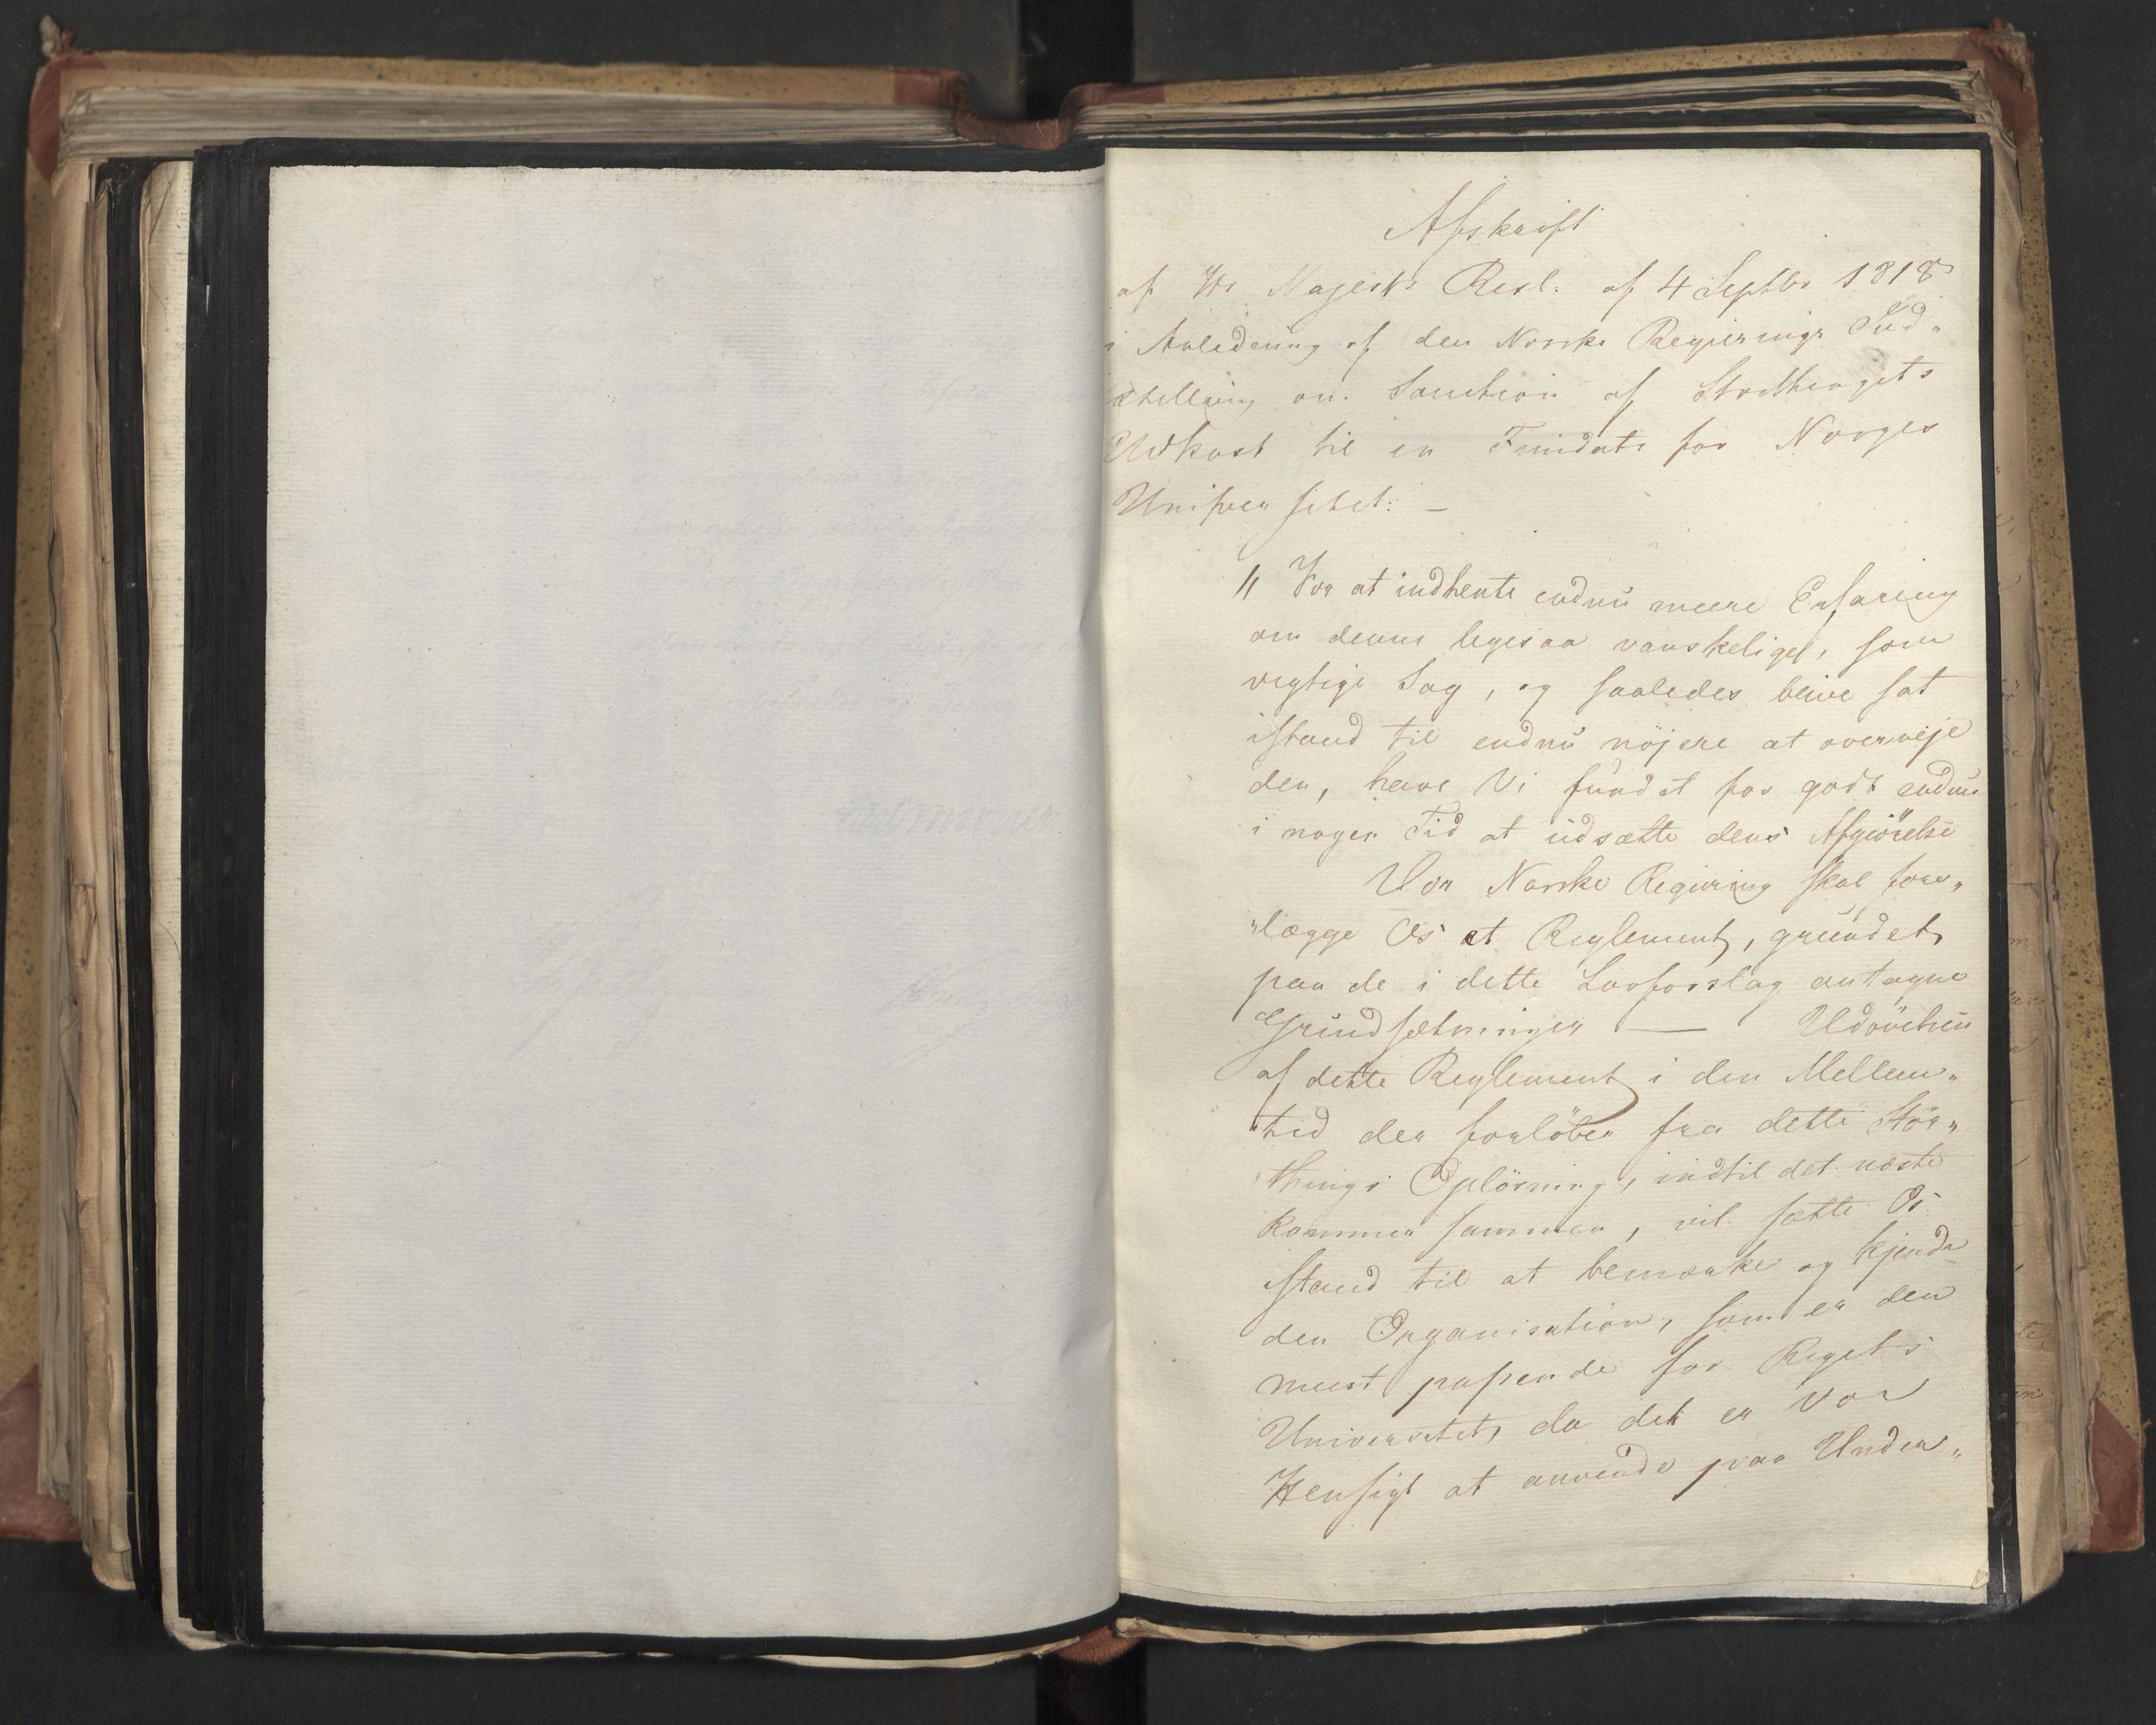 Afskrift
af Hs Majest's Resl: af 4 Septbr 1818
i Anledning af den Norske Regjerings Ind„
stilling om Sanction af Storthingets
Udkast til en Fundats for Norges
Universitet: —
" For at indhente endnu meere Erfaring
om denne ligesaa vanskelige, som
vigtige Sag, og saaledes blive sat
istand til endnu nöjere at overveje
den, have Vi fundet for godt endnu
i nogen Tid at udsætte dens Afgiörelse
Vor Norske Regiering skal fore„
„lægge Os et Reglement, grundet
paa de i dette Lovforslag antagne
Grundsætninger — Udövelsen
af dette Reglement i den Mellem„
„tid der forlöber fra dette Stor„
„things Oplösning, indtil det næste
kommer sammen, vil sætte Os
istand til at bemærke og kjende
den Organisation, som er den
meest passende for Rigets
Universitet, da det er Vor
Hensigt at anvende paa Under„